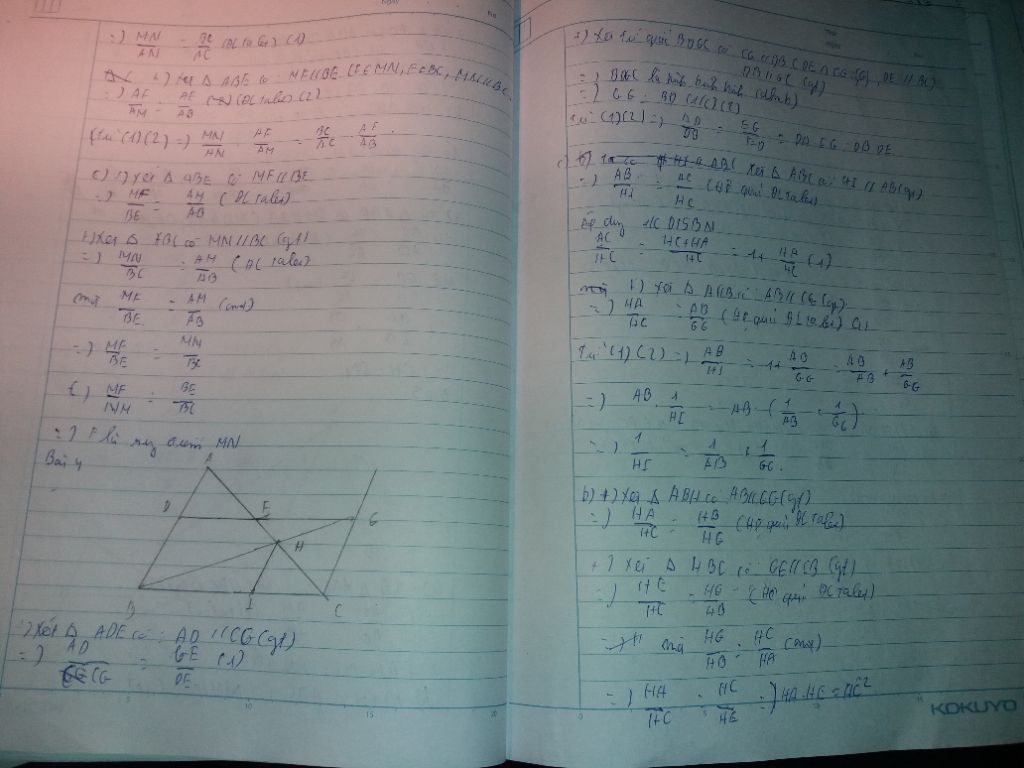 =) MN/AN = BC/AC (ĐL talet) (1)
2) Xét Δ ABE có MF//BE (F∈MN, E∈BC, MN//BC
=) AF/AM = AE/AB (ĐL tales) (2)
(Từ (1)(2) =) MN/AN AF/AM = BC/AC AE/AB
c) 1) Xét Δ ABE có MF//BE
=) MF/BE = AM/AB (ĐL tales)
+) Xét Δ ABC có MN//BC (gt)
=) MN/BC = AM/AB (ĐL tales)
mà MF/BE = AM/AB (cmt)
=) MF/BE = MN/BC
MF/NM = BE/BC
=) F là trung điểm MN
Bài 4
A
D E G
H
B I C
Xét Δ ADE có: AD//CG (gt)
=) AD/CG = GE/DE (1)
+) Xét tứ giác BDGC có CG//DB (DE∩CG={G}, DE//BC)
DB//GC (gt)
=) BDGC là hình bình hành (dhnb)
=) CG = BD (2)
Từ (1)(2) =) AD/DB = EG/ED = DA.EG = DB.DE
c) Xét Δ ABC có HI//AB (gt)
=) AB/HI = AC/HC (Hệ quả ĐL tales)
Áp dụng t/c DTSBN
AC/HC = HC+HA/HC = 1+ HA/HC (1)
+) Xét Δ AHB có AB//CG (gt)
=) HA/HC = AB/CG (Hệ quả ĐL tales) (2)
Từ (1)(2) =) AB/HI = 1+ AB/CG = AB/AB + AB/CG
=) AB. 1/HI = AB.(1/AB + 1/CG)
=) 1/HI = 1/AB + 1/CG.
b) +) Xét Δ ABH có AB//CG (gt)
=) HA/HC = HB/HG (Hệ quả ĐL tales)
+) Xét Δ HBC có GE//CB (gt)
=) HE/HC = HG/HB (Hệ quả ĐL tales)
mà HG/HB = HC/HA (cmt)
=) HA/HC = HC/HE =) HA.HE = HC²
KOKUYO